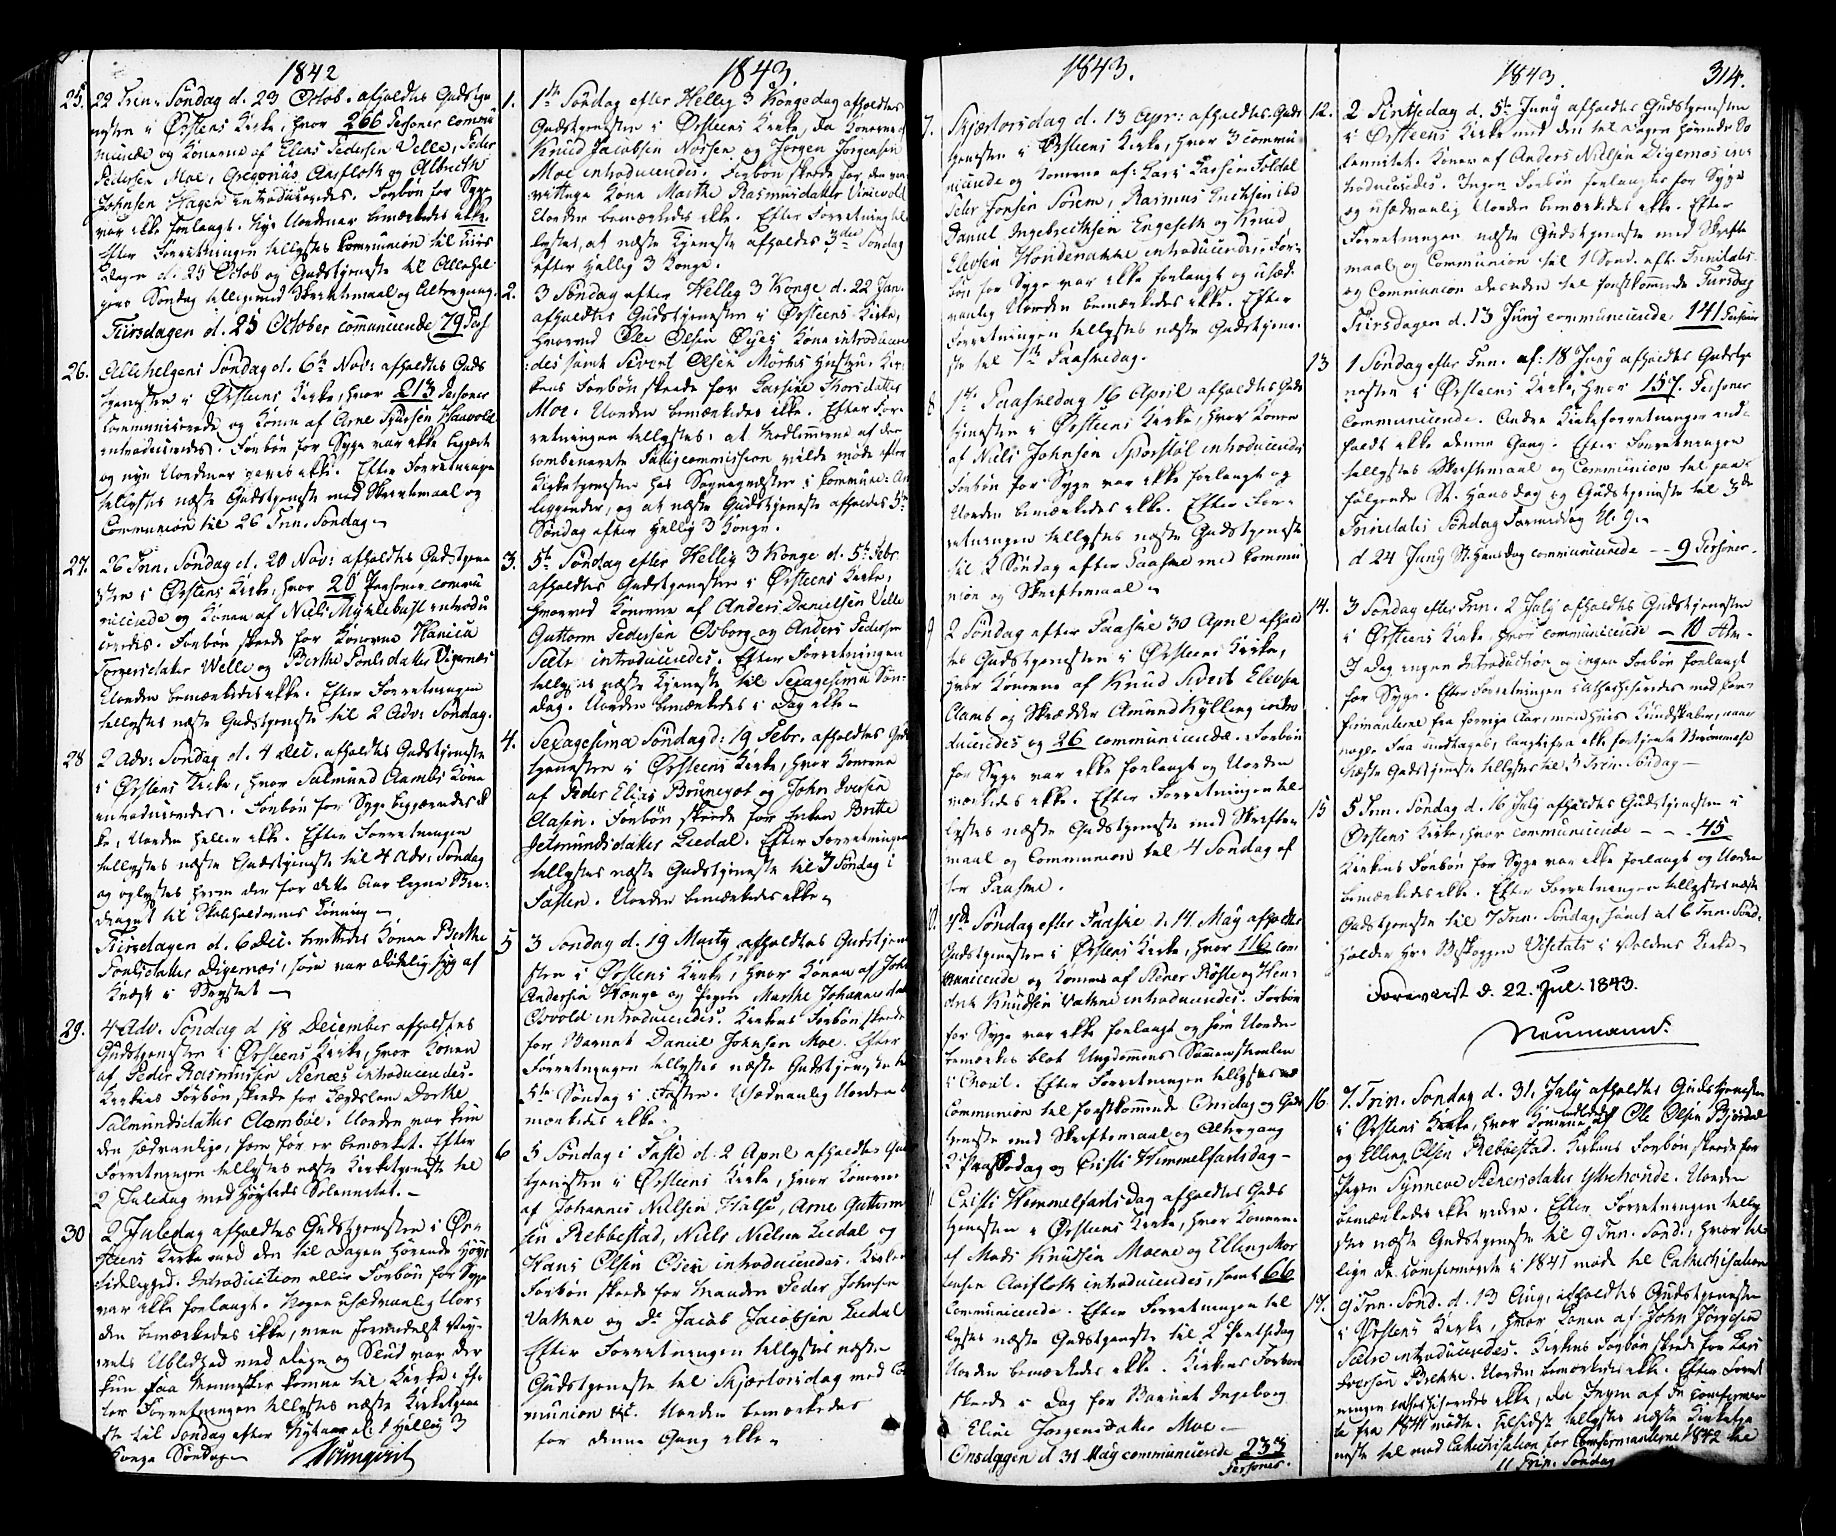 1842
25. 22 Trin: Søndag d. 23 Octob. afholdtes Gudstje-
nesten i Ørstens Kirke, hvor 266 Personer commu
nicerede og Konerne af Elias Pedersen Velle, Peder
Pedersen Moe, Gregorius Aarfloth og Albrecht
Johnsen Hagen introduceredes. Forbøn for Syge
var ikke forlangt. Nye Uordner bemærkedes ikke.
Efter Forretningen tillystes Communion til Tirs
dagen d. 25 Octob og Gudstjeneste til Allehel
gens Søndag tilligemed Skriftemaal og Altergang.
Tirsdagen d. 25 October communicerede 79 Pers
26. Allehelgens Søndag d. 6te Nov: afholdtes Guds
tjenesten i Ørstens Kirke, hvor 213 Personer
communicerede og Konen af Arne Haavold
introduceredes. Forbøn for Syge var ikke begjært
og nye Uordner ikke. Efter Forretningen
tillystes næste Gudstjeneste med Skriftemaal og
Communion til 26 Trin. Søndag.
27. 26 Trin. Søndag d. 20 Nov: afholdtes Gudstjene
sten i Ørstens Kirke, hvor 20 Personer commu
nicerede og Konen af Niels Myklebust introdu
ceredes. Forbøn skede for Konerne Hanica
Velle og Berthe Digernæs
Uorden bemærkedes ikke. Efter Forretningen
tillystes næste Gudstjeneste til 2 Adv: Søndag.
28 2 Adv: Søndag d. 4 Dec. afholdtes Gudstjeneste
i Ørstens Kirke, hvor Salmund Aambs Kone
introduceredes. Forbøn for Syge begjærtes ik
ke, Uorden heller ikke. Efter Forretningen
tillystes næste Gudstjeneste til 4 Adv: Søndag
og oplystes hvem der for dette Aar ligne Bi-
draget til Skoleholdernes Lønning.
Tirsdagen d. 6 Dec. Konen Berthe
Digernæs, som var dødelig syg af
i Brystet
29. 4 Adv. Søndag d 18 December afholdtes
Gudstjenesten i Ørstens Kirke, hvor Konen
af Peder Rasmussen Stenæs introduceredes.
Kirkens Forbøn skede for Dorthe
Salmundsdatter Aambøe. Uorden var kun
den sædvanlige, som før er bemærket. Efter
Forretningen tillystes næste Kirketjeneste til
2 Juledag med Høytids Solennitet.
30 2 Juledag afholdtes Gudstjenesten i Ør-
stens Kirke med den til Dagen hørende Høy
tidelighed. Introduction eller Forbøn for Syge
var ikke forlangt. Nogen usædvanlig Uor-
den bemærkedes ikke, men formedelst Vey-
rets Ublidhed med og Slud var der
kun faa Mennesker komne til Kirke. Ef-
ter Forretningen tillystes næste Kirketjene
ste til Søndag efter Nytaar el. 1 Hellig 3
Konge Søndag
1843.
1. 1ste Søndag efter Hellig 3 Kongedag afholdtes
Gudstjenesten i Ørsteens Kirke, da Konerne af
Knud Jacobsen Nossen og Jørgen Jørgensen
Moe introduceredes. Forbøn skede for
Kone Marthe Rasmusdatter Vinievold
Uorden bemærkedes ikke. Efter Forretning til
lystes, at næste Tjeneste afholdes 3die Søndag
efter Hellig 3 Konge.
2. 3 Søndag efter Hellig 3 Konge d. 22 Jan.
afholdtes Gudstjenesten i Ørsteens Kirke,
hvorved Ole Olsen Øyes Kone introducere
des samt Sivert Olsen Hustru. Kir-
kens Forbøn skede for Larsine Thorsdatter
Moe. Uorden bemærkedes ikke. Efter For-
retningen tillystes: at Medlemmerne af den
combinerede Fattigcommission vilde møde efter
Kirketjenesten hos Sognepræsten i Kommune-An
liggender, og at næste Gudstjeneste afholdes 5te
Søndag efter Hellig 3 Konge.
3. 5te Søndag efter Hellig 3 Konge d. 5te Febr.
afholdtes Gudstjenesten i Ørsteens Kirke,
hvorved Konerne af Anders Danielsen Velle
Guttorm Pedersen Osborg og Anders Pedersen
Sætre introduceredes. Efter Forretningen
tillystes næste Tjeneste til Sexagesima Søn-
dag. Uorden bemærkedes i Dag ikke
4. Sexagesima Søndag d: 19 Febr. afholdtes Guds
tjenesten i Ørsteens Kirke, hvor Konerne
af Peder Elias Brunegot og John Iversen
Aasen. Forbøn skede for Enken Brithe
Jetmundsdatter Liedal. Efter Forretningen
tillystes næste Gudstjeneste til 3 Søndag i
Fasten. Uorden bemærkedes ikke
5 3 Søndag d. 19 Marty afholdtes Gudstjene
sten i Ørsteens Kirke, hvor Konen af John
Andersen Hovge og Pigen Marthe Johannesdatter
Osvold introduceredes. Kirkens Forbøn skede
for Barnet Daniel Johnsen Moe. Efter
Forretningen tillystes næste Gudstjeneste til
5te Søndag i Fasten. Usædvanlig Uorden be
mærkedes ikke.
6 5 Søndag i Faste d. 2 April afholdtes Guds
tjenesten i Ørsteens Kirke, hvor Konerne
af Johannes Nielsen Halse, Arne Guttorm
sen Rebbestad, Niels Nielsen Liedal og
Hans Olsen Osen introduceredes. Kirkens
Forbøn skede for Manden Peder Johnsen
Vathne og Do Jacob Jacobsen Liedal
Efter Forretningen tillystes næste
Gudstjeneste til Skjærtorsdag med Com
munion &c. Uorden bemærkedes
for denne Gang ikke
1843.
7. Skjærtorsdag d. 13 Apr: afholdtes Guds
tjenesten i Ørsteens Kirke, hvor 3 commu
nicerede og Konerne af Lars Larsen Foldal
Peder Jonsen Sørem, Rasmus Erichsen ibd
Daniel Ingebrethsen Engeseth og Knud
Elevsen Hondenakke introduceredes. For-
bøn for Syge var ikke forlangt og usæd-
vanlig Uorden bemærkedes ikke. Efter
Forretningen tillystes næste Gudstjene-
ste til 1ste Paaskedag.
8 1ste Paaskedag 16 April afholdtes Guds
tjenesten i Ørsteens Kirke, hvor Konen
af Niels Johnsen Sporstøl introduceredes
Forbøn for Syge var ikke forlangt og
Uorden bemærkedes ikke. Efter For-
retningen tillystes næste Gudstjeneste
til 2 Søndag efter Paaske med Commu
nion og Skriftemaal
9 2 Søndag efter Paaske 30 April afhold
tes Gudstjenesten i Ørsteens Kirke,
hvor Konerne af Knud Sivert Elevsen
Aamb og Skrædder Amund Kylling intro
duceredes og 26 communicerede. Forbøn
for Syge var ikke forlangt og Uorden
mærkedes ikke. Efter Forretningen til-
lystes næste Gudstjeneste med Skrifte-
maal og Communion til 4 Søndag ef
ter Paaske.
10. 4de Søndag efter Paaske d. 14 May afholdtes
Gudstjenesten i Ørsteens Kirke, hvor 116 com
municerede og Konerne af Stener Røsle og Hen-
drik Knudsen Vathne introduceredes. Forbøn
for Syge var ikke forlangt og som Uorden
bemærkes blot Ungdommens Sammenstimlen
i Choret. Efter Forretningen tillystes
Communion til forstkommende Onsdag og Guds
tjeneste med Skriftemaal og Altergang
2 Paaskedag og Cristi Himmelfartsdag
11 Cristi Himmelfartsdag afholdtes Guds
tjenesten i Ørsteens Kirke, hvor Konerne
af Mads Knudsen Moene og Elling Mor
tensen Aarfloth introduceredes, samt 66
Communicerede. Efter Forretningen til
lystes næste Gudstjeneste til 2 Pintsedag
Uorden bemærkedes ikke. Kirkens Forbøn
skede i Dag for Barnet Ingeborg
Eline Jørgensdatter Moe
Onsdagen d 31 May communicerede 233
Personer.
1843. 314.
12. 2 Pintsedag d. 5te Juny afholdtes Gudstjenesten
i Ørsteens Kirke med den til Dagen hørende So
lennitet. Konen af Anders Nielsen Digernæs in-
troduceredes. Ingen Forbøn forlangtes for Syge
og usædvanlig Uorden bemærkedes ikke. Efter
Forretningen næste Gudstjeneste med Skrifte
maal og Communion til 1 Sønd. eft. Trinitatis
og Communion desuden til forstkommende Tirsdag
Tirsdagen d. 13 Juny communicerede 141 Personer
13 1 Søndag efter Trin. af: 18 Juny afholdtes Gudstje
nesten i Ørsteens Kirke, hvor 157 Personer
Communicerede. Andre Kirkeforretninger ind-
faldt ikke denne Gang. Efter Forretningen
tillystes Skriftemaal og Communion til paa-
følgende St. Hansdag og Gudstjeneste til 3de
Trinitatis Søndag Formiddag Kl. 9.
d 24 Juny St. Hansdag communicerede -- 9 Personer.
14. 3 Søndag efter Trin. 2 July afholdtes Gudstjenesten
i Ørsteens Kirke, hvor communicerede — 10
I Dag ingen Introduction og ingen Forbøn forlangt
for Syge. Efter Forretningen catechiseredes med Con-
firmanterne fra forrige Aar, men hvis Kundskaber, naar
nogle Faa undtages, langtfra ikke fortjente Berømmelse
Næste Gudstjeneste tillystes til 5 Trin. Søndag
15 5 Trin. Søndag d. 16 July afholdtes Gudstjenesten i
Ørstens Kirke, hvor communicerede - - 45
Kirkens Forbøn for Syge var ikke forlangt og Uorden
bemærkedes ikke. Efter Forretningen tillystes næste
Gudstjeneste til 7 Trin. Søndag, samt at 6 Trin. Sønd.
holder Hr. Biskoppen Visitats i Voldens Kirke
Forevist d. 22. Jul. 1843.
Neumann.
16 7. Trin. Søndag d. 31. July afholdtes Gudstjenesten
i Ørstens Kirke, hvor Konerne af Ole Olsen Bjørdal
og Elling Olsen Rebbestad. Kirkens Forbøn skede for
Pigen Synneve Stenersdatter Yttrehovde. Uorden
bemærkedes ikke videre. Efter Forretningen tilly
stes næste Gudstjeneste til 9 Trin. Sønd., hvor til-
lige de Confirmerede i 1841 møde til Catechisation
17. 9 Trin. Sønd. d. 13 Aug. afholdtes Gudstjenesten
i Ørstens Kirke, hvor Konen af John Jørgensen
Sætre introduceredes. Kirkens Forbøn skede for Lars
Iversen Brekke. Uorden bemærkedes ikke. Efter Forret
ningen catechiseredes ikke, da Ingen af de Confirmer
te fra 1841 mødte. Tilsidst tillystes næste Kirketje
neste til med Catechisation for Confirmanterne 1842 til
11 Trin. Søndag